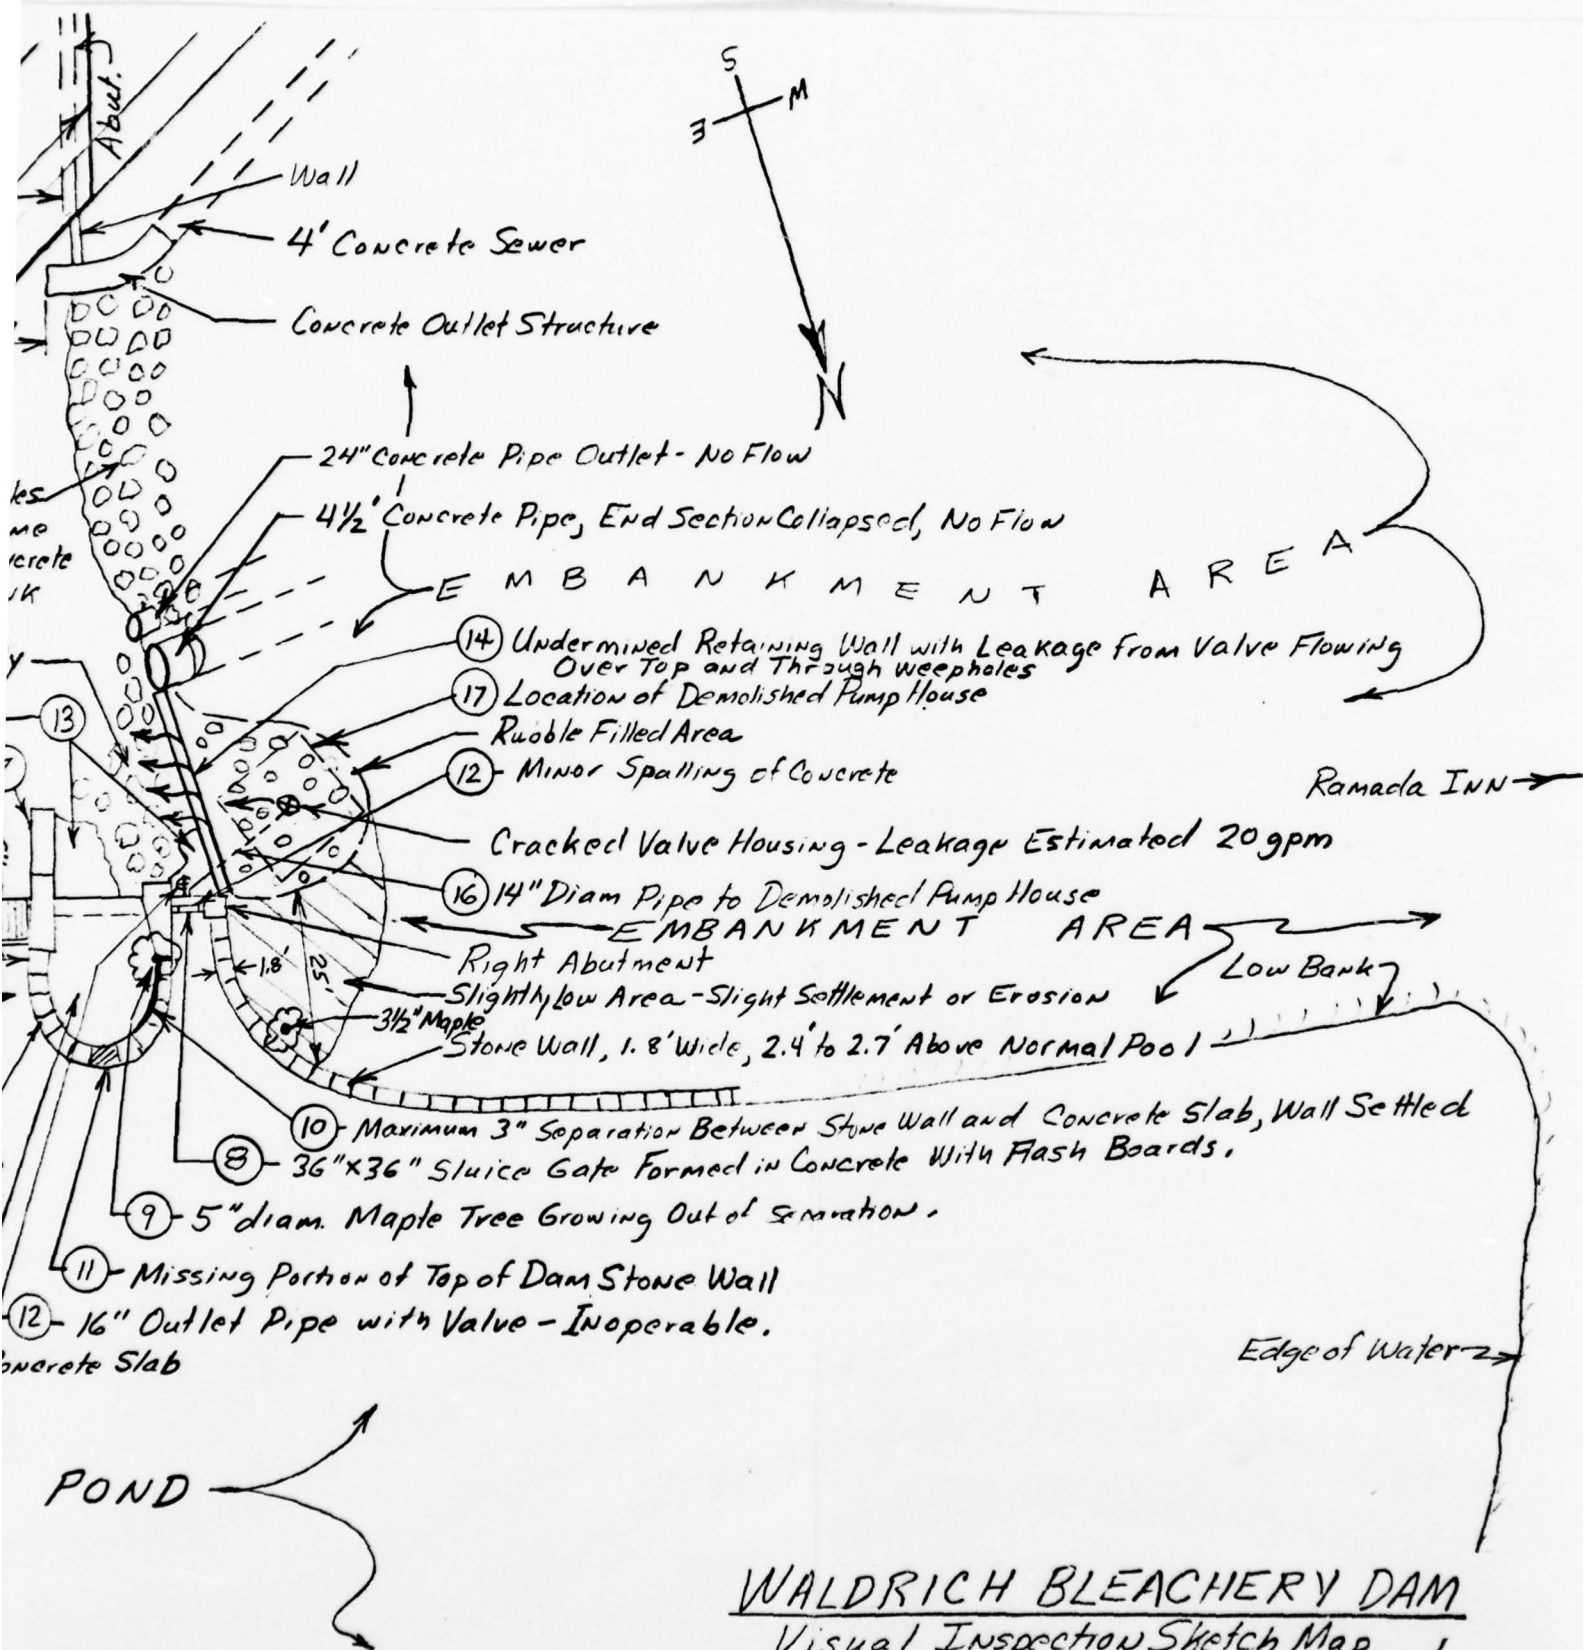 S
W
E
N
Abut.
Wall
4' Concrete Sewer
Concrete Outlet Structure
24" Concrete Pipe Outlet - No Flow
4½' Concrete Pipe, End Section Collapsed, No Flow
EMBANKMENT AREA
14 Undermined Retaining Wall with Leakage From Valve Flowing
Over Top and Through weepholes
17 Location of Demolished Pump House
13
Rubble Filled Area
12 - Minor Spalling of Concrete
Ramada Inn
Cracked Valve Housing - Leakage Estimated 20 gpm
16 14" Diam Pipe to Demolished Pump House
EMBANKMENT AREA
Right Abutment
1.8'
25'
Low Bank
Slightly Low Area - Slight Settlement or Erosion
3½" Maple
Stone Wall, 1.8' Wide, 2.4' to 2.7' Above Normal Pool
10 - Maximum 3" Separation Between Stone Wall and Concrete Slab, Wall Settled
8 - 36" x 36" Sluice Gate Formed in Concrete With Flash Boards.
9 - 5" diam. Maple Tree Growing Out of Separation.
11 - Missing Portion of Top of Dam Stone Wall
12 - 16" Outlet Pipe with Valve - Inoperable.
oncrete Slab
Edge of Water
POND
WALDRICH BLEACHERY DAM
Visual Inspection Sketch Map